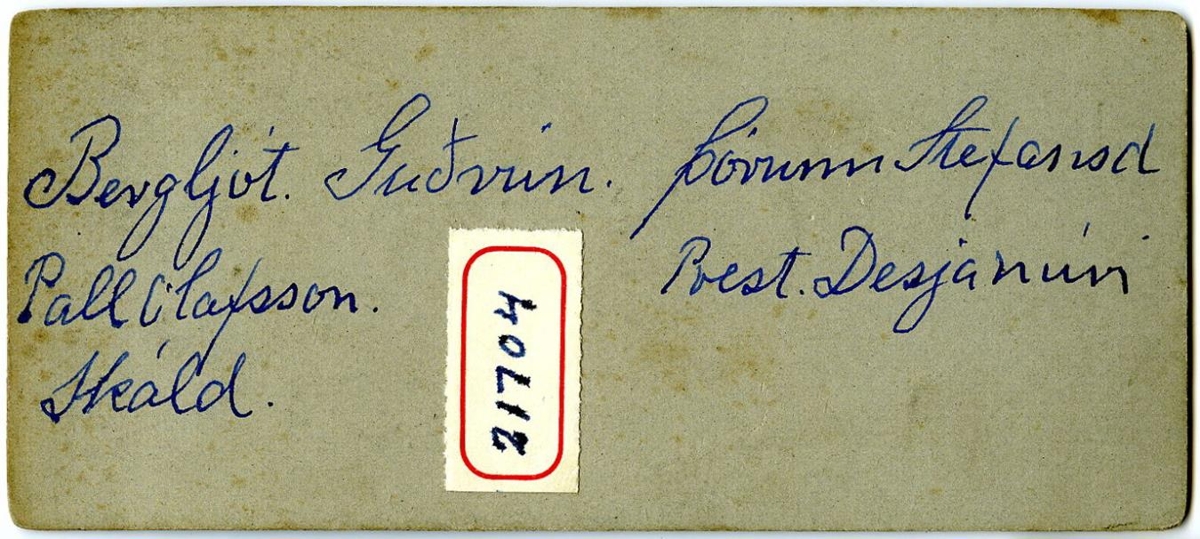 Bergljót. Guðrún. Þórunn Stefansd
Pall Olafsson. Prest. Desjarmúri
Skáld.
21704